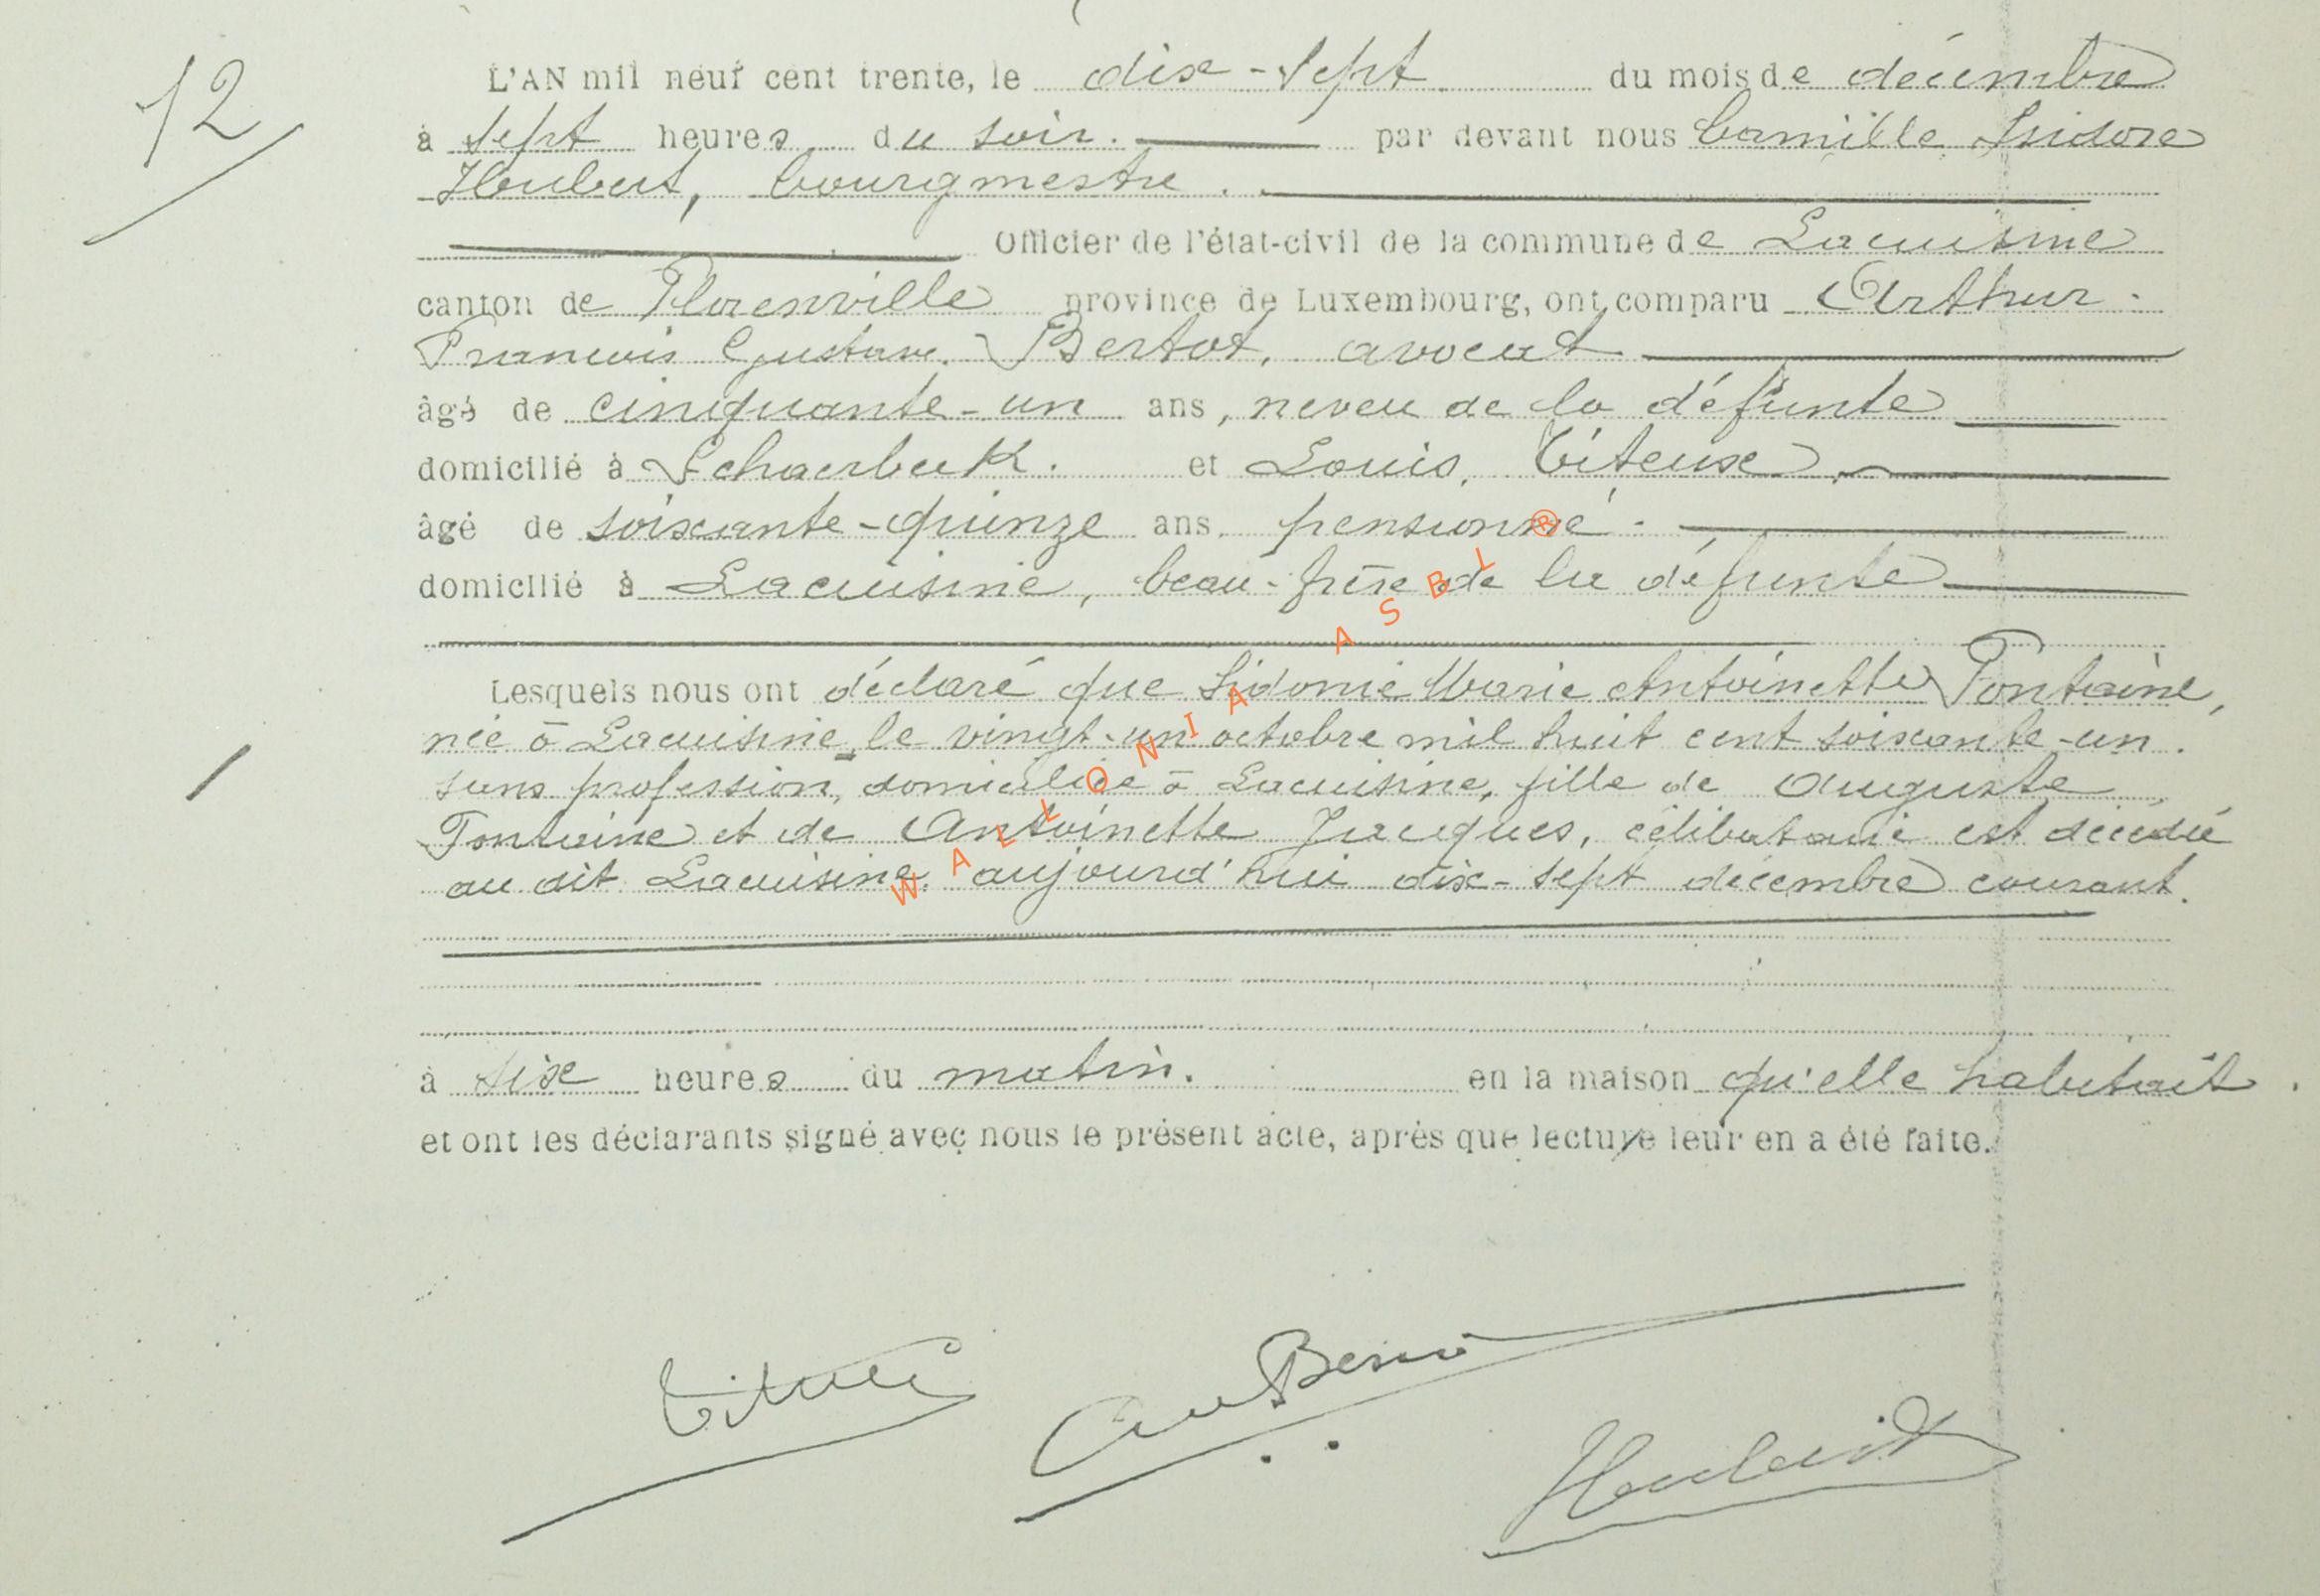 12
L'AN mil neuf cent trente, le dix-sept du mois de décembre
à sept heures du soir. par devant nous Camille Isidore
Houbert, bourgmestre.
Officier de l'état-civil de la commune de Lacuisine
canton de Florenville province de Luxembourg, ont comparu Arthur
François Gustave Bertot, avocat
âgé de cinquante-un ans, neveu de la défunte
domicilié à Schaerbeek. et Louis, Titeux,
âgé de soixante-quinze ans pensionné.
domicilié à Lacuisine, beau-frère de la défunte
Lesquels nous ont déclaré que Sidonie Marie Antoinette Fontaine,
née à Lacuisine, le vingt-un octobre mil huit cent soixante-un.
sans profession, domiciliée à Lacuisine, fille de Auguste
Fontaine et de Antoinette Jacques, célibataire est décédée
au dit Lacuisine, aujourd'hui dix-sept décembre courant.
à six heures du matin. en la maison qu'elle habitait.
et ont les déclarants signé avec nous le présent acte, après que lecture leur en a été faite.
WALLONIA ASBL ®